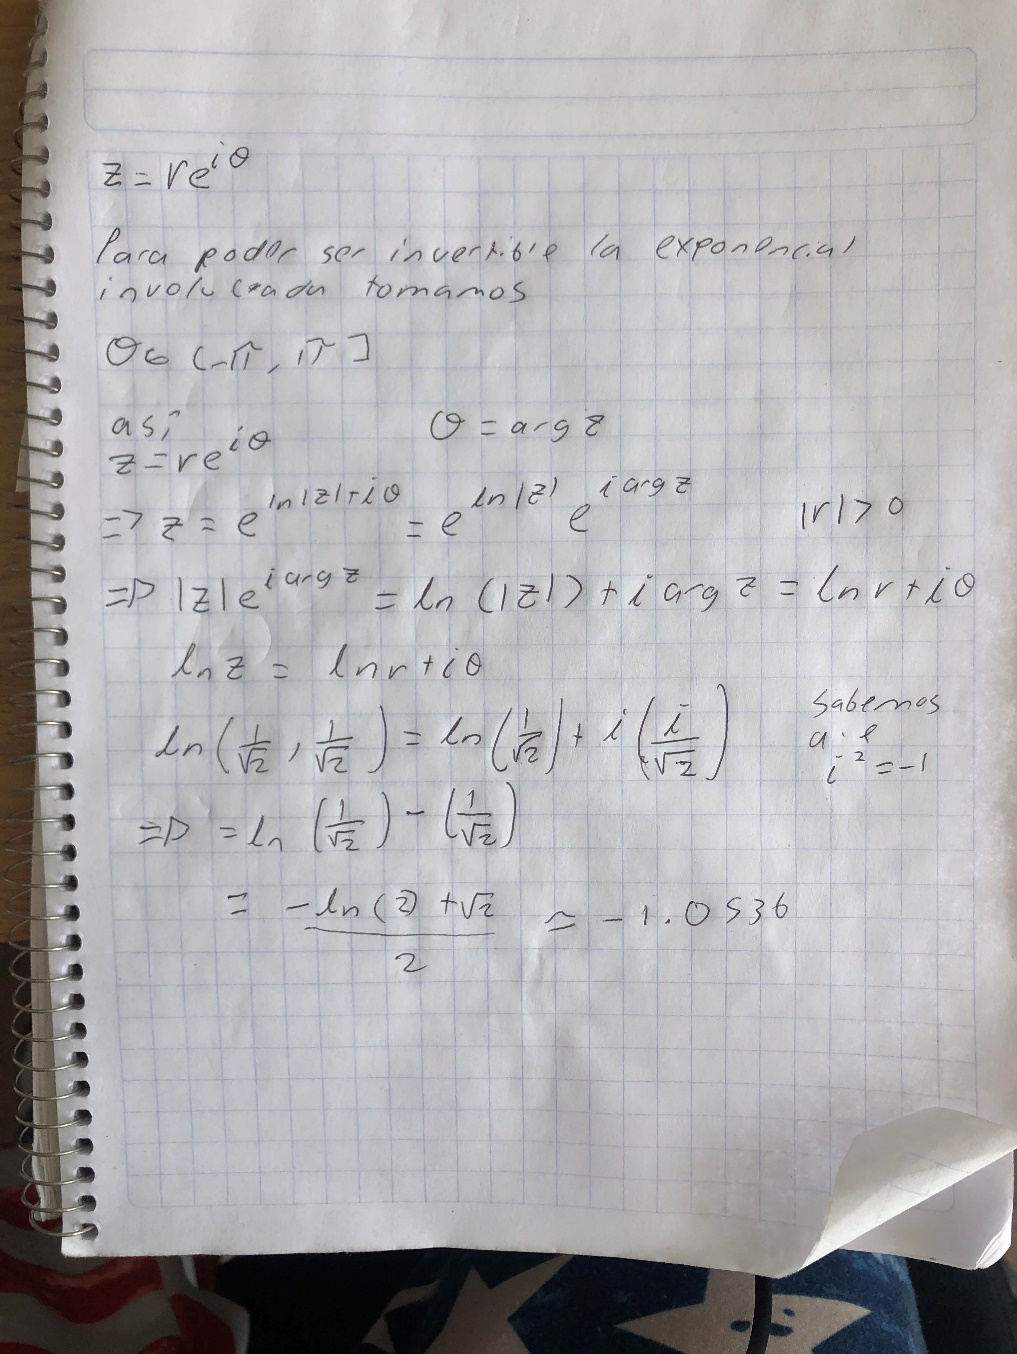 z = re^{iθ}
Para poder ser invertible la exponencial
involucrada tomamos
θ ∈ (-π, π]
así θ = arg z
z = re^{iθ}
=> z = e^{ln|z|+iθ} = e^{ln|z|} e^{i arg z} |r| > 0
=> |z|e^{i arg z} = ln (|z|) + i arg z = ln r + iθ
ln z = ln r + iθ
ln (1/√2, 1/√2) = ln (1/√2) + i (i/√2) sabemos
que
i² = -1
=> = ln (1/√2) - (1/√2)
= -ln(2) + √2 / 2 ≃ -1.0536